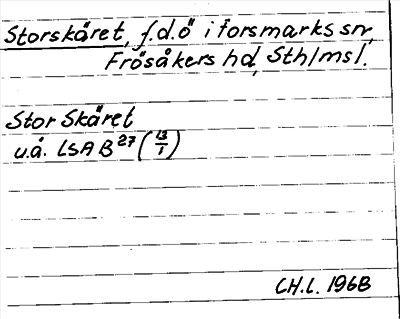 Storskäret, f.d.ö i forsmarks sn,
Frösåkers hd, Sthlms l.
Stor Skäret
u.å. LSA B 27 (13/1)
CH.L. 1968